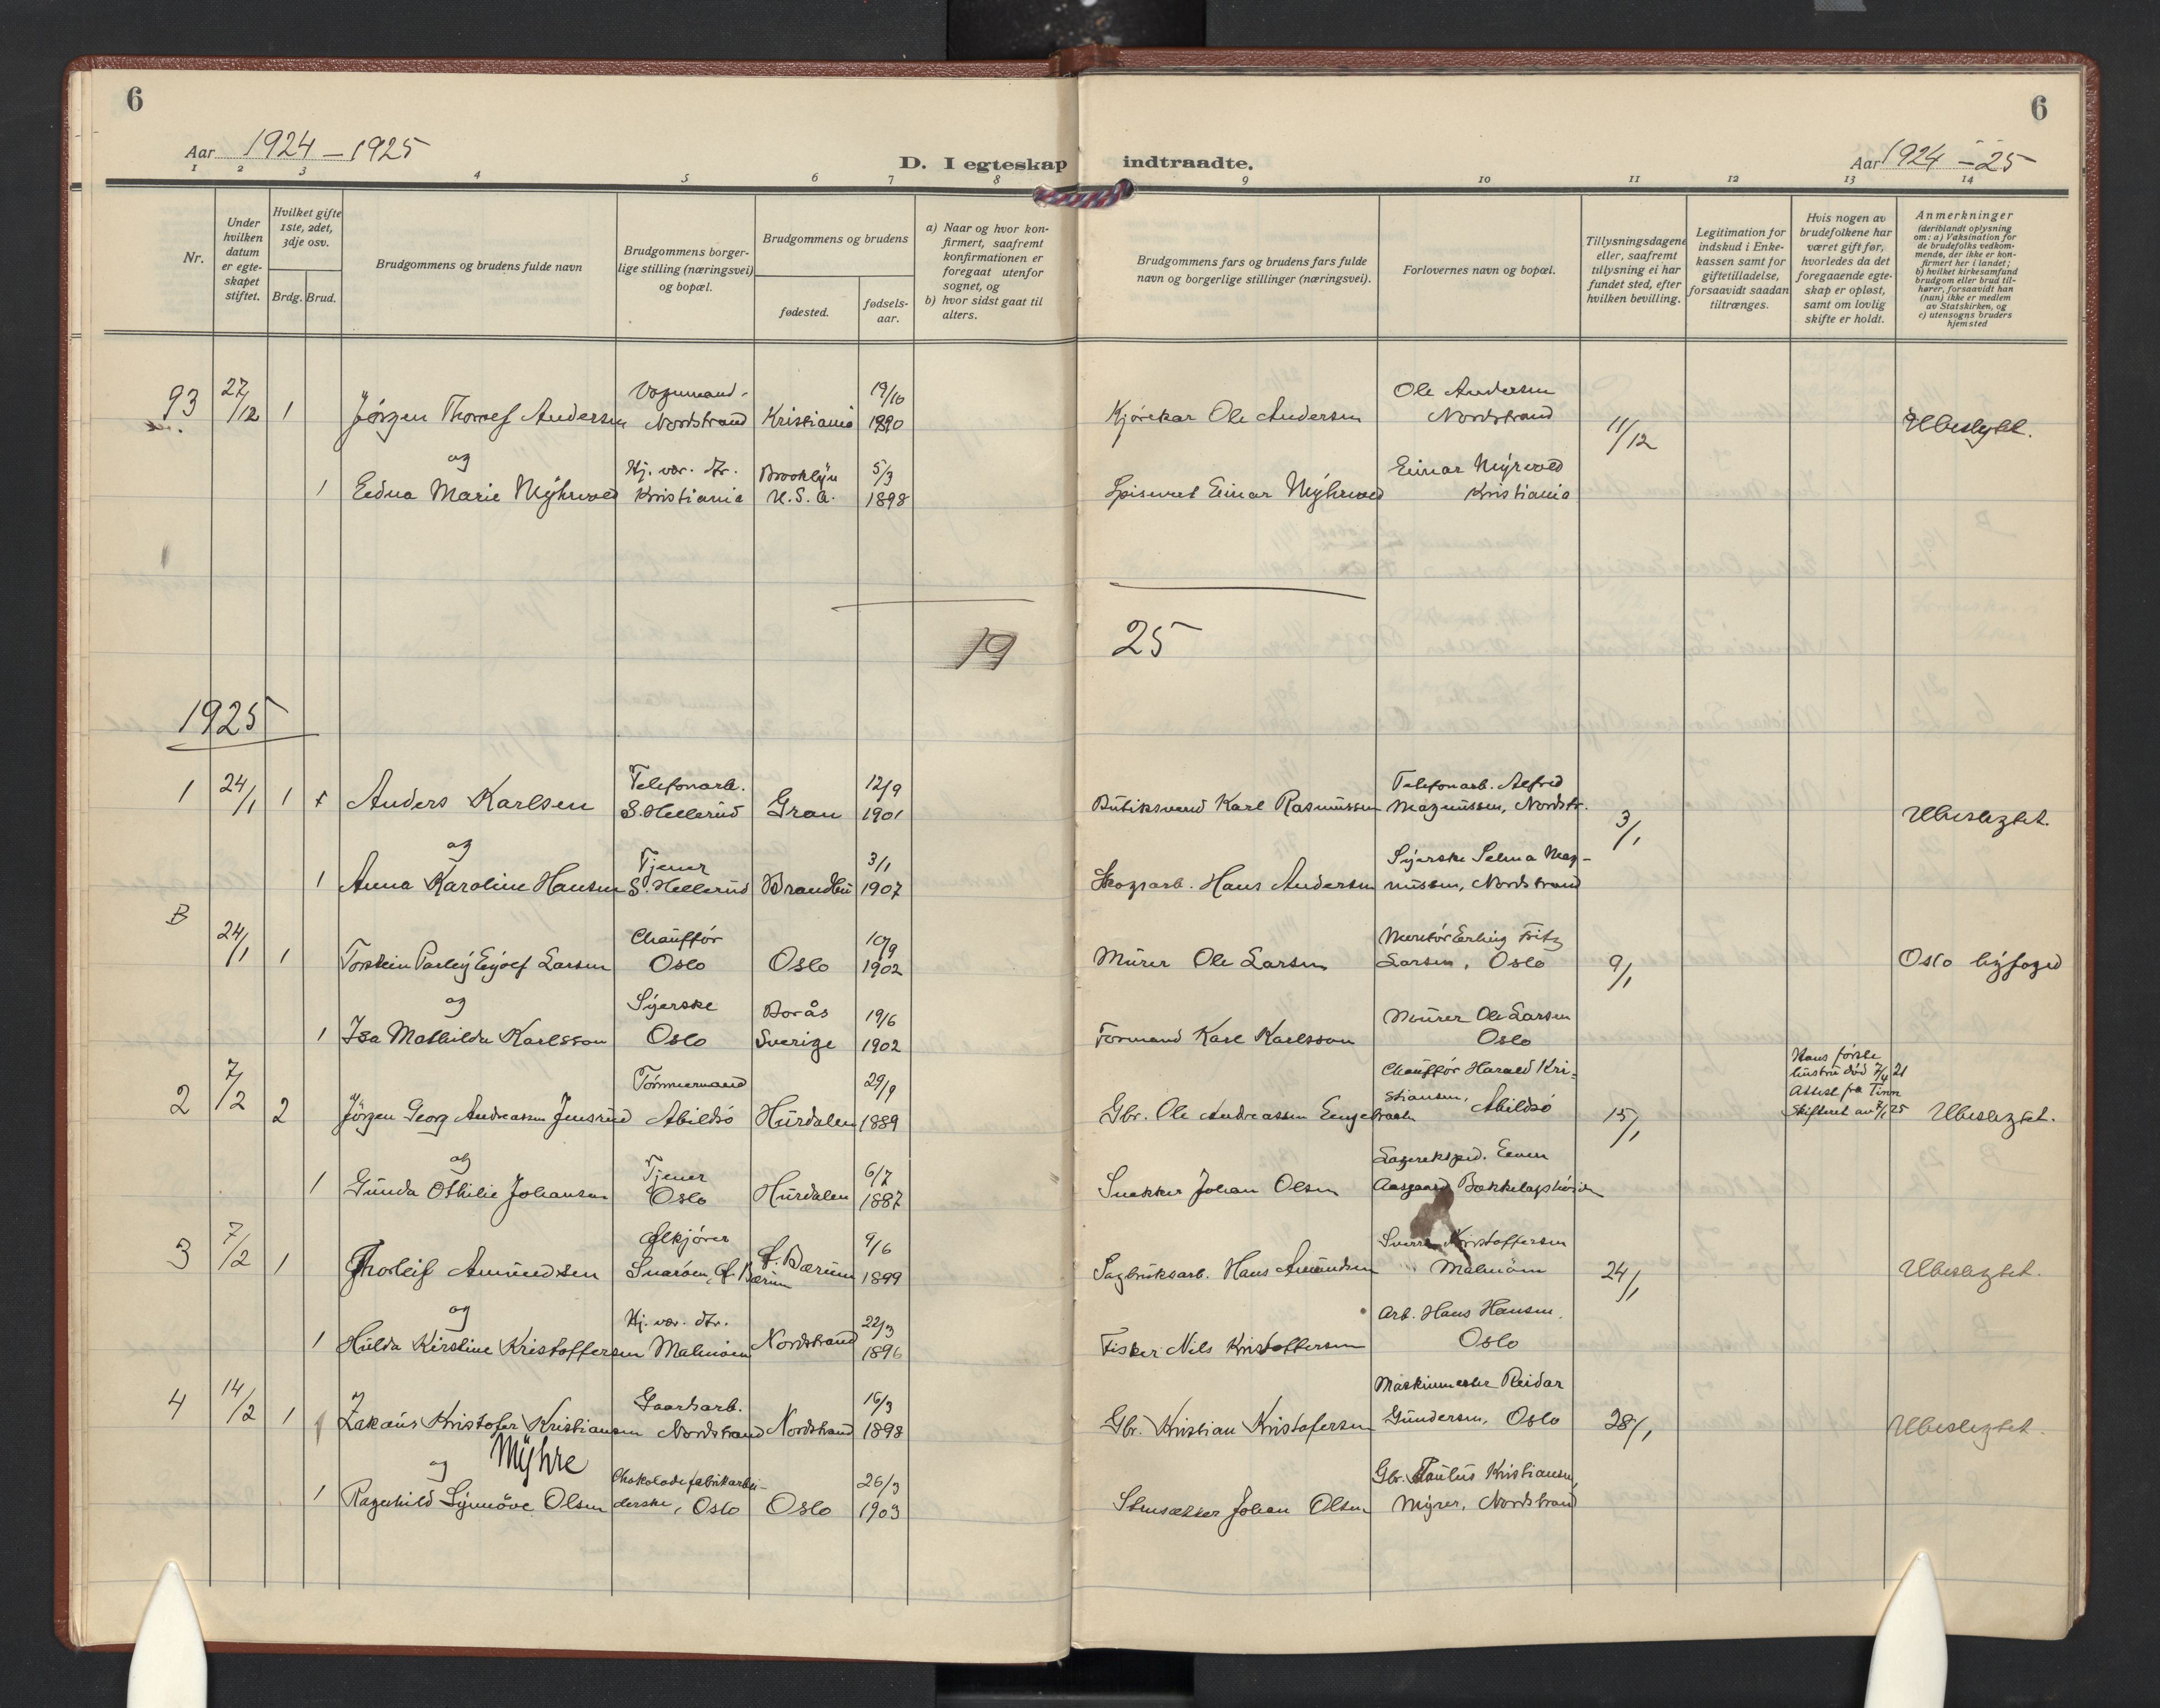 6
6
Aar 1924 – 1925
D. I egteskap indtraadte.
Aar 1924 – 25
1 2 3 4 5 6 7 8 9 10 11 12 13 14
Nr.
Under hvilken datum er egte- skapet stiftet.
Hvilket gifte 1ste, 2det, 3dje osv.
Brdg. Brud.
Brudgommens og brudens fulde navn
Brudgommens borger- lige stilling (næringsvei) og bopæl.
Brudgommens og brudens
fødested.
fødsels- aar.
a) Naar og hvor kon- firmert, saafremt konfirmationen er foregaat utenfor sognet, og
b) hvor sidst gaat til alters.
Brudgommens fars og brudens fars fulde navn og borgerlige stillinger (næringsvei).
Forlovernes navn og bopæl.
Tillysningsdagene eller, saafremt tillysning ei har fundet sted, efter hvilken bevilling.
Legitimation for indskud i Enke- kassen samt for giftetilladelse, forsaavidt saadan tiltrænges.
Hvis nogen av brudefolkene har været gift før, hvorledes da det foregaaende egte- skap er opløst, samt om lovlig skifte er holdt.
Anmerkninger (deriblandt oplysning om: a) Vaksination for de brudefolks vedkom- mende, der ikke er kon- firmert her i landet; b) hvilket kirkesamfund brudgom eller brud til- hører, forsaavidt han (hun) ikke er medlem av Statskirken, og c) utensogns bruders hjemsted
93 27/12 1 Jørgen Thoralf Andersen Vognmand. Nordstrand Kristiania 19/10 1890 Kjørekar Ole Andersen Ole Andersen Nordstrand 11/12 Ubeslegtet.
og
1 Edna Marie Myhrvold Hj. vær. dtr. Kristiania Brooklyn U.S.A. 5/3 1898 Einar Myhrvold Einar Myrvold Kristiania
19 25
1925
1 24/1 1 Anders Karlsen Telefonarb. S. Hellerud Gran 12/9 1901 Karl Rasmussen Telefonarb. Alfred Magnussen, Nordstr. 3/1 Ubeslegtet.
og
1 Anna Karoline Hansen Tjener S. Hellerud Brandbu 3/1 1907 Skogsarb. Hans Andersen Syerske Selma Mag- nussen, Nordstrand
B 24/1 1 Torstein Eyolf Larsen Chauffør Oslo Oslo 10/9 1902 Murer Ole Larsen Erling Fritz Larsen, Oslo 9/1 Oslo byfoged
og
1 Isa Mathilda Karlsson Syerske Oslo Borås Sverige 19/6 1902 Formand Karl Karlsson Murer Ole Larsen Oslo
2 7/2 2 Jörgen Georg Andreassen Jensrud Tømmermand Abildsø Hurdalen 29/9 1889 Gbr. Ole Andreassen Chauffør Harald Kri- stiansen, Abildsö 15/1 Hans første hustru død 7/4 21 Attest fra Tinn Skifteret av 7/1 25 Ubeslegtet.
og
1 Gunda Othilie Johansen Tjener Oslo Hurdalen 6/7 1887 Snekker Johan Olsen Lagereksped. Even Aasgaard
3 7/2 1 Thorleif Amundsen Ølkjører Snarøen, Ø. Bærum Ø. Bærum 9/6 1899 Sagbruksarb. Hans Amundsen Sverre Kristoffersen Malmøen 24/1 Ubeslegtet.
og
1 Hulda Kirstine Kristoffersen Hj. vær. dtr. Malmøen Nordstrand 22/3 1896 Fisker Nils Kristoffersen Arb. Hans Hansen. Oslo
4 14/2 1 Zakaus Kristofer Kristiansen Myhre Gaardsarb. Nordstrand Nordstrand 16/3 1898 Gbr. Kristian Kristofersen Maskinmester Reidar Gundersen, Oslo 28/1 Ubeslegtet.
og
1 Ragnhild Synnöve Olsen Chokoladefabrikarbei- derske, Oslo Oslo 26/3 1903 Johan Olsen Gbr. Paulus Kristiansen, Myrer, Nordstrand